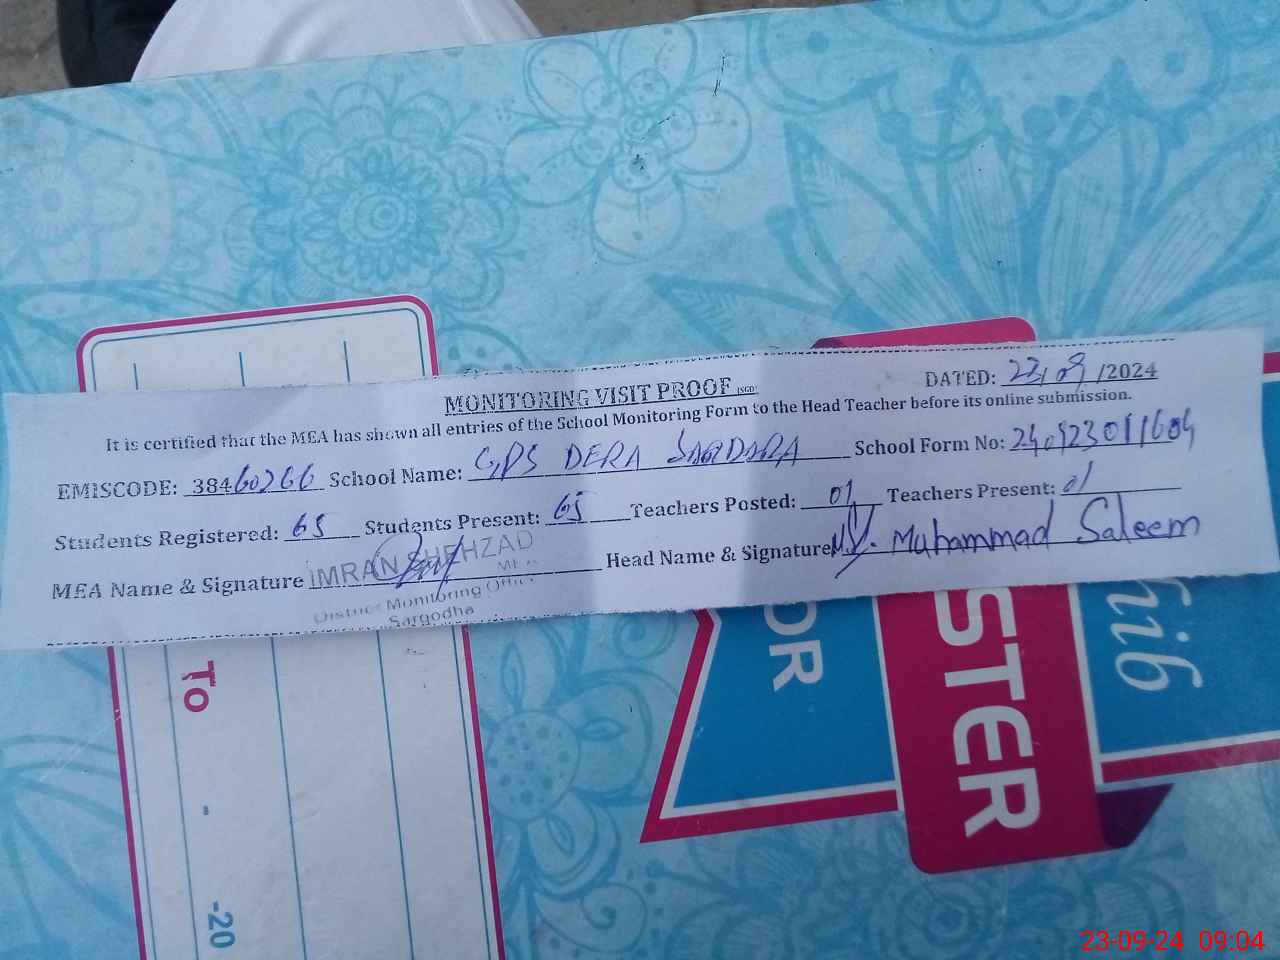 MONITORING VISIT PROOF (SGD)
DATED: 23/09/2024
It is certified that the MEA has shown all entries of the School Monitoring Form to the Head Teacher before its online submission.
EMISCODE: 38460266 School Name: GPS DERA SARDARA School Form No:
Students Registered: 65 Students Present: 65 Teachers Posted: 01 Teachers Present: 01
MEA Name & Signature IMRAN SHEHZAD Head Name & Signature Muhammad Saleem
MEA
District Monitoring Office
Sargodha
To
- -20
OR
STER
hib
23-09-24 09:04